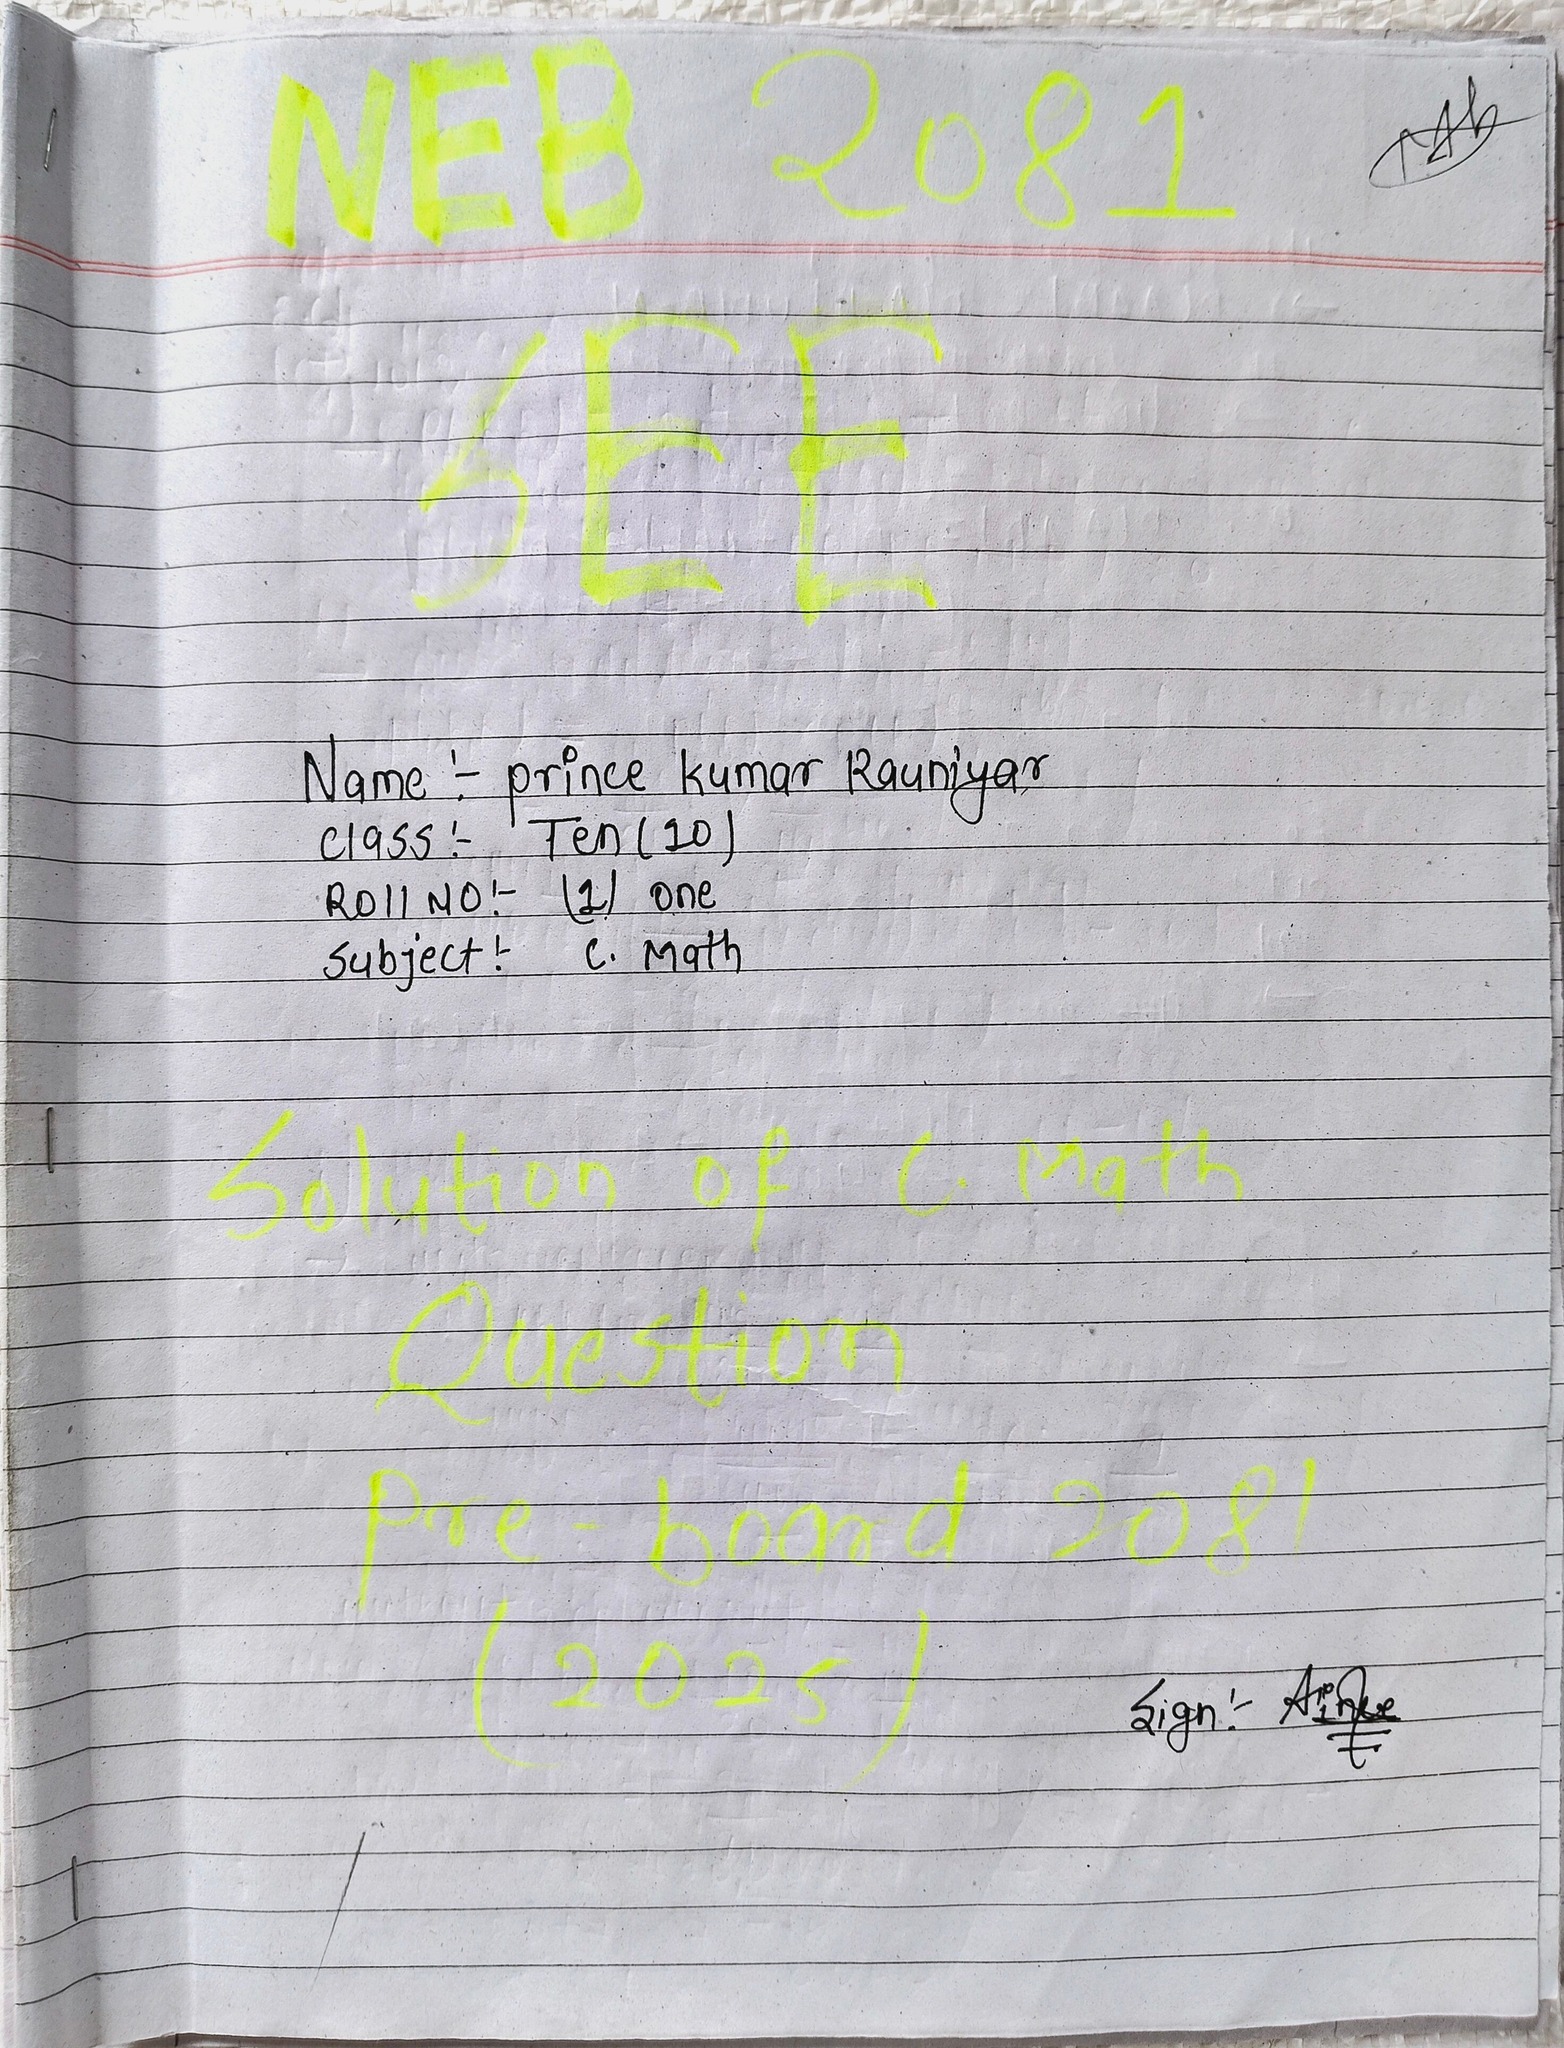 NEB 2081
SEE
Name :- prince kumar Rauniyar
Class :- Ten (10)
Roll NO :- (1) one
Subject :- C. Math
Solution of C. Math
Question
Pre-board 2081
(2025)
Sign :-